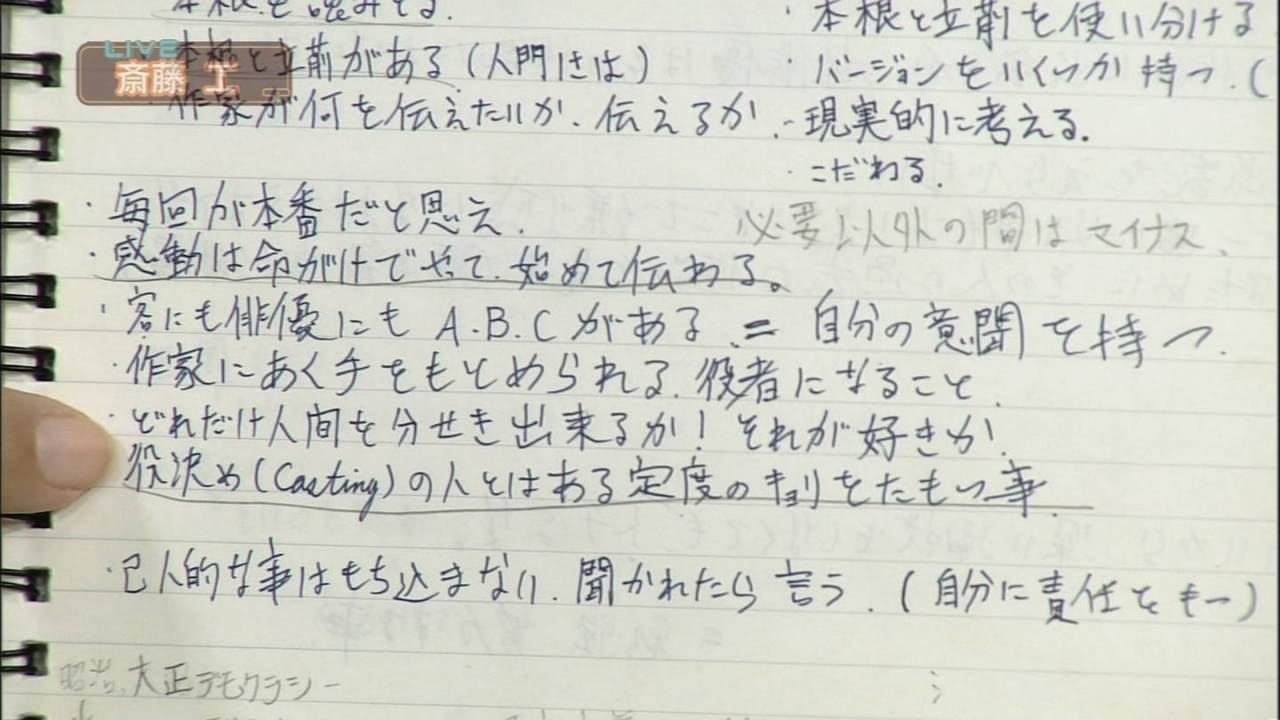 本根を読みとる.
・本根と立前を使い分ける
LIVE
斎藤 工
本根と立前がある(人間とは)
・バージョンをいくつか持つ.(
・作家が何を伝えたいか、伝えるか.
・現実的に考える.
・こだわる.
・毎回が本番だと思え.
必要以外の間はマイナス.
・感動は命がけでやって、始めて伝わる。
・客にも俳優にも A.B.C がある = 自分の意聞を持つ.
・作家にあく手をもとめられる、役者になること.
・どれだけ人間を分せき出来るか! それが好きか.
役決め(Casting)の人とはある定度のキョリをたもつ事.
・己人的な事はもち込まない. 聞かれたら言う. (自分に責任をもつ)
昭治、大正デモクラシー